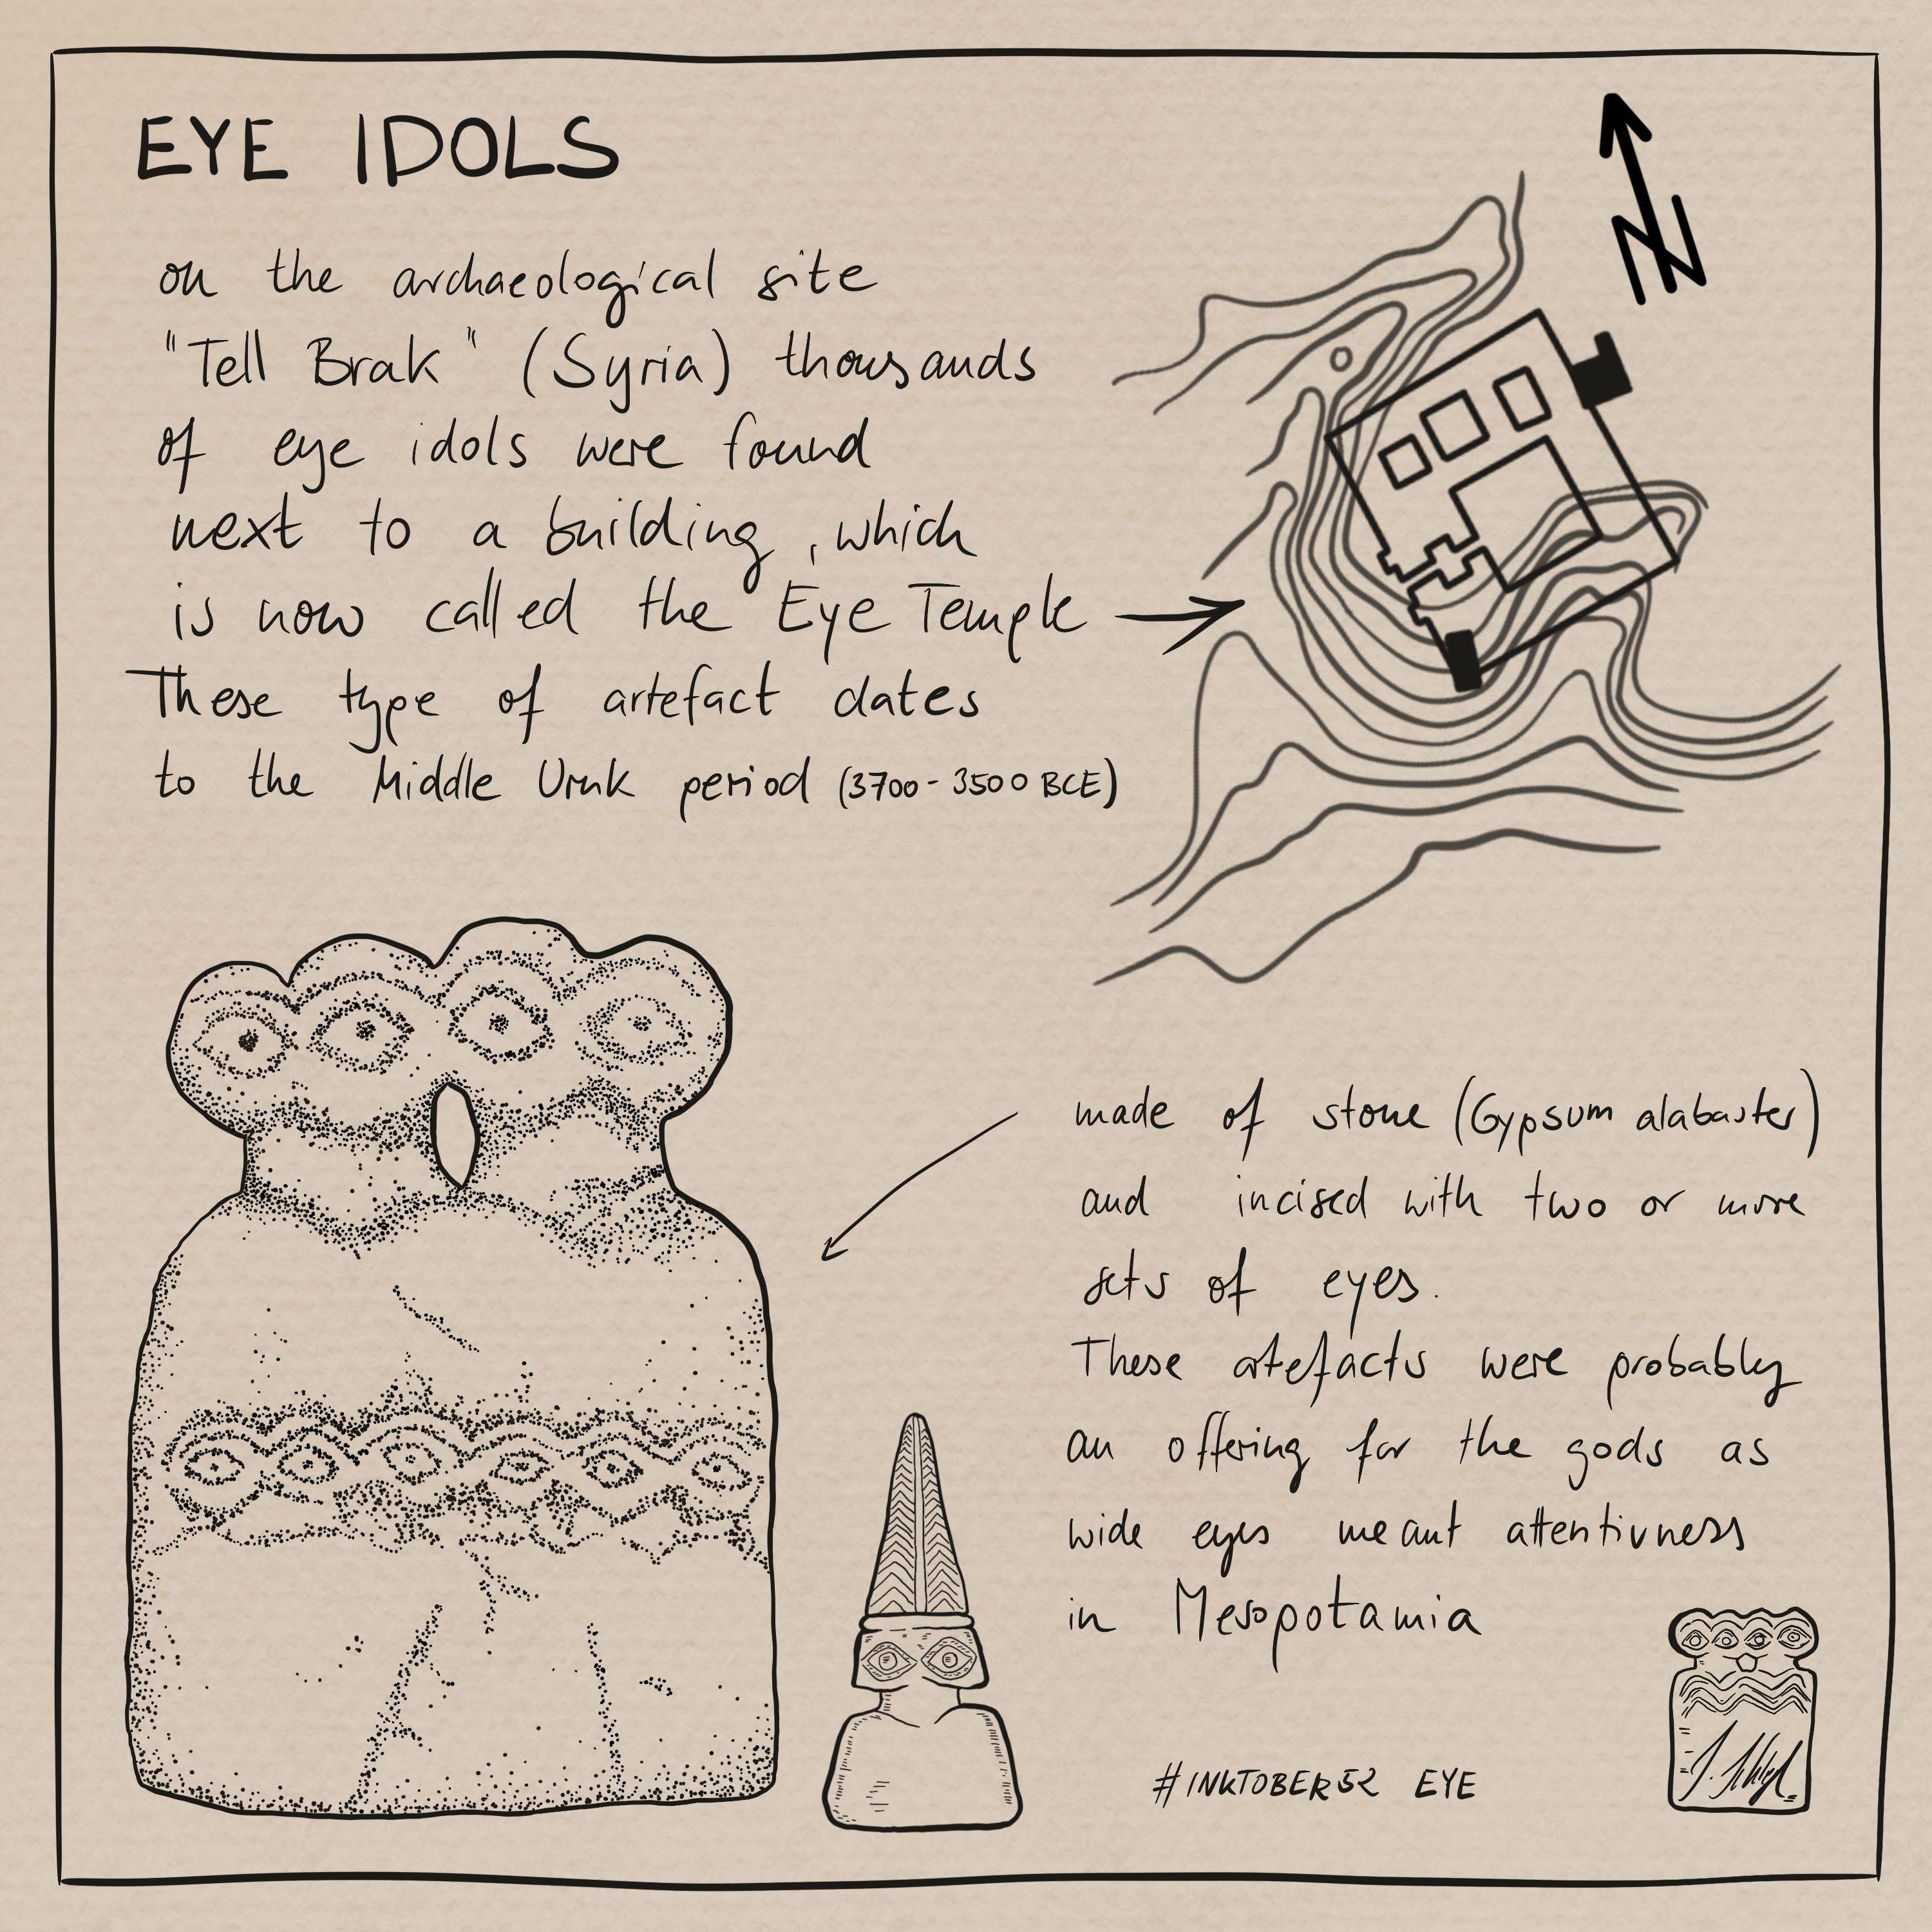 EYE IDOLS
on the archaeological site
"Tell Brak" (Syria) thousands
of eye idols were found
next to a building, which
is now called the Eye Temple
These type of artefact dates
to the Middle Uruk period (3700-3500 BCE)
N
made of stone (Gypsum alabaster)
and incised with two or more
sets of eyes.
These artefacts were probably
an offering for the gods as
wide eyes meant attentivness
in Mesopotamia
#INKTOBER52 EYE